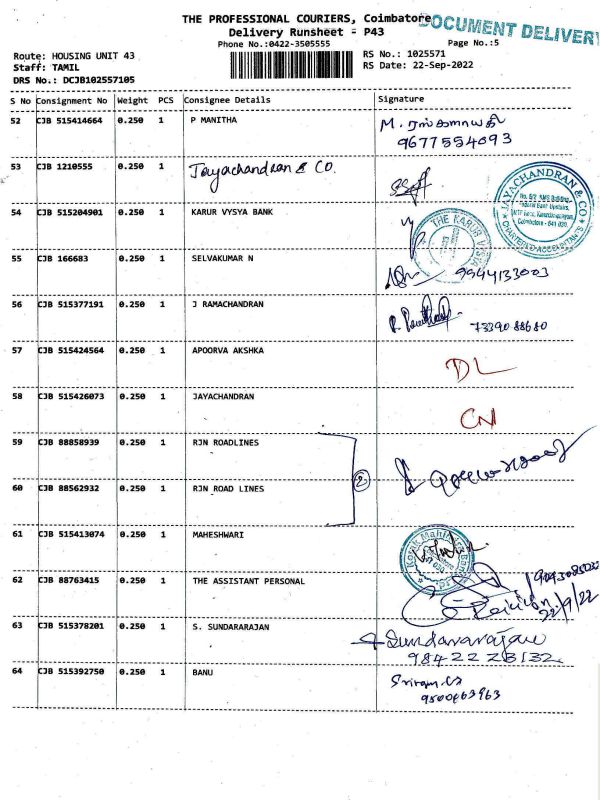 THE PROFESSIONAL COURIERS, Coimbatore
DOCUMENT DELIVERY
Delivery Runsheet - P43
Phone No.:0422-3505555
Page No.:5
Route: HOUSING UNIT 43
RS No.: 1025571
Staff: TAMIL
RS Date: 22-Sep-2022
DRS No.: DCJB102557105
S No Consignment No Weight PCS Consignee Details Signature
52 CJB 515414664 0.250 1 P MANITHA
9677554093
53 CJB 1210555 0.250 1 Jayachandran & CO.
JAYACHANDRAN & CO
CHARTERED ACCOUNTANTS
54 CJB 515204901 0.250 1 KARUR VYSYA BANK
THE KARUR VYSYA
55 CJB 166683 0.250 1 SELVAKUMAR N
9944133003
56 CJB 515377191 0.250 1 J RAMACHANDRAN
7339088680
57 CJB 515424564 0.250 1 APOORVA AKSHKA
DL
58 CJB 515426073 0.250 1 JAYACHANDRAN
CN
59 CJB 88858939 0.250 1 RJN ROADLINES
2
60 CJB 88562932 0.250 1 RJN ROAD LINES
61 CJB 515413074 0.250 1 MAHESHWARI
Kotak Mahindra Bank
62 CJB 88763415 0.250 1 THE ASSISTANT PERSONAL
22/9/22
63 CJB 515378201 0.250 1 S. SUNDARARAJAN
Sundararajan
98422 28132
64 CJB 515392750 0.250 1 BANU
9500463963